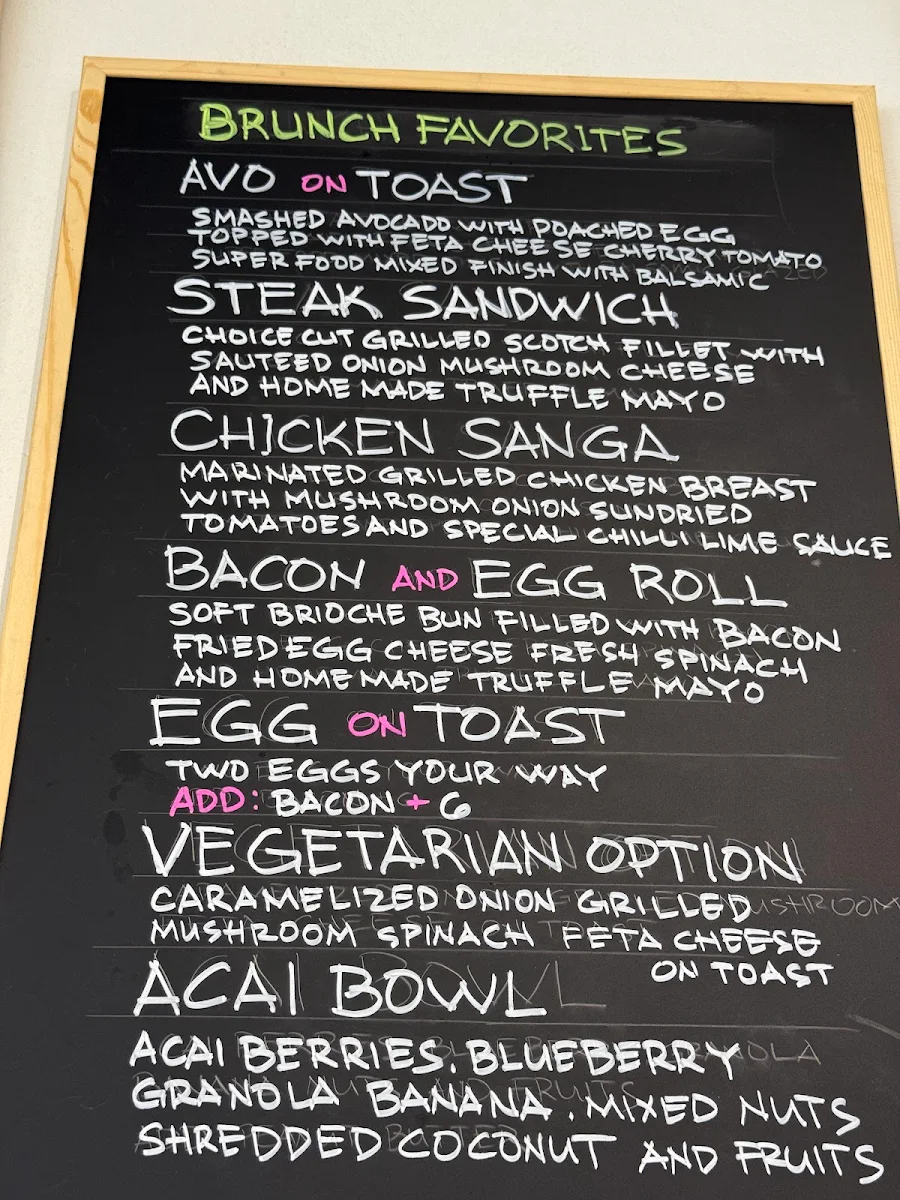 BRUNCH FAVORITES
AVO ON TOAST
SMASHED AVOCADO WITH POACHED EGG
TOPPED WITH FETA CHEESE CHERRY TOMATO
SUPER FOOD MIXED FINISH WITH BALSAMIC
STEAK SANDWICH
CHOICE CUT GRILLED SCOTCH FILLET WITH
SAUTEED ONION MUSHROOM CHEESE
AND HOME MADE TRUFFLE MAYO
CHICKEN SANGA
MARINATED GRILLED CHICKEN BREAST
WITH MUSHROOM ONION SUNDRIED
TOMATOES AND SPECIAL CHILLI LIME SAUCE
BACON AND EGG ROLL
SOFT BRIOCHE BUN FILLED WITH BACON
FRIED EGG CHEESE FRESH SPINACH
AND HOME MADE TRUFFLE MAYO
EGG ON TOAST
TWO EGGS YOUR WAY
ADD: BACON + 6
VEGETARIAN OPTION
CARAMELIZED ONION GRILLED
MUSHROOM SPINACH FETA CHEESE
ON TOAST
ACAI BOWL
ACAI BERRIES. BLUEBERRY
GRANOLA BANANA. MIXED NUTS
SHREDDED COCONUT AND FRUITS